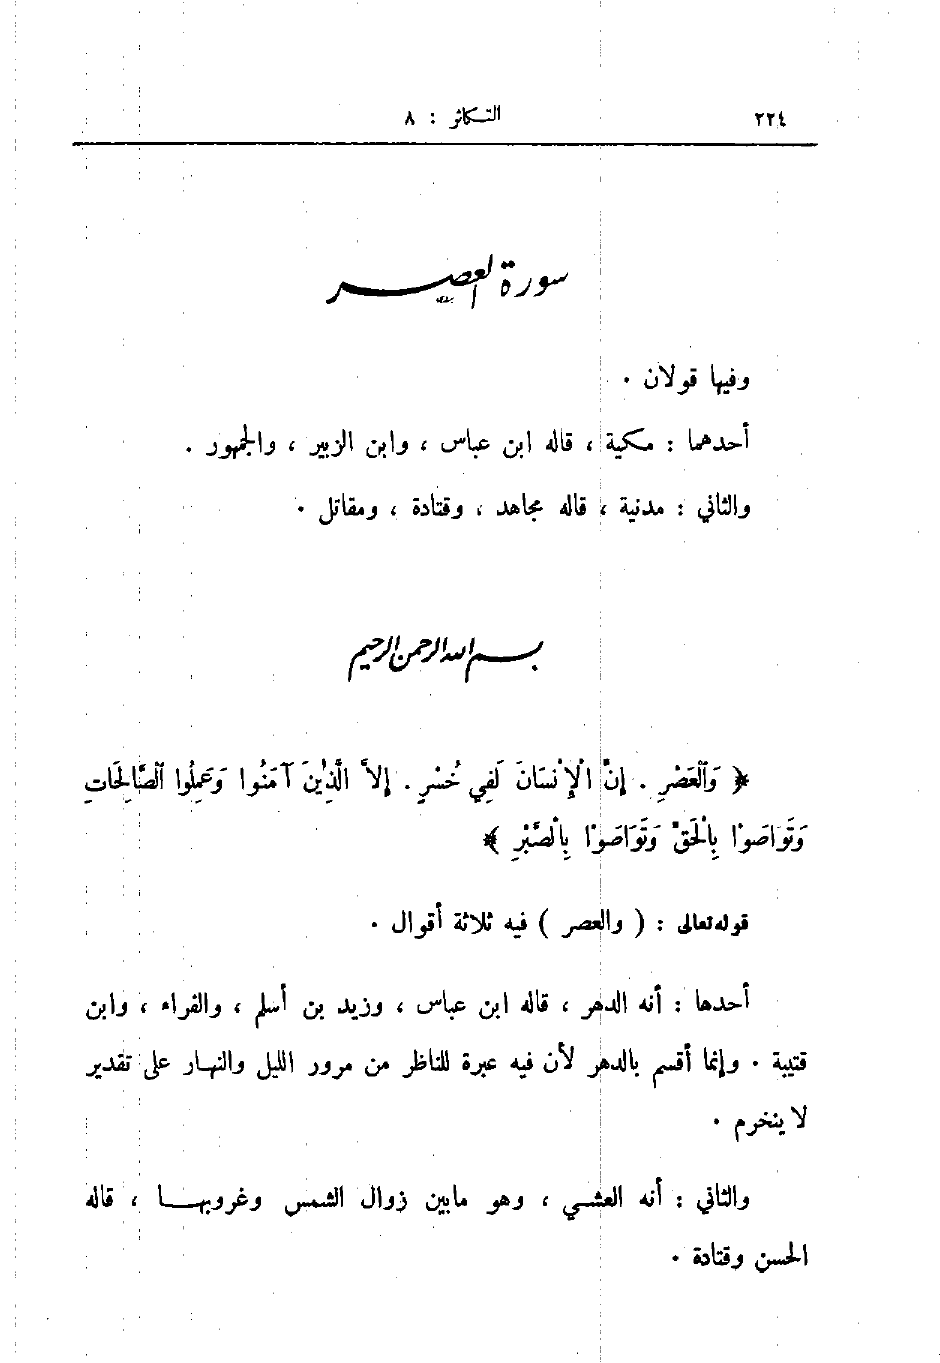 ٢٢٤ التكاثر : ٨
سورة العصر
وفيها قولان .
أحدهما : مكية ، قاله ابن عباس ، وابن الزبير ، والجمهور .
والثاني : مدنية ، قاله مجاهد ، وقتادة ، ومقاتل .
بسم الله الرحمن الرحيم
﴿ وَٱلْعَصْرِ . إِنَّ الْإِنْسَانَ لَفِي خُسْرٍ . إِلاَّ الَّذِينَ آمَنُوا وَعَمِلُوا ٱلصَّالِحَاتِ
وَتَوَاصَوْا بِالْحَقِّ وَتَوَاصَوْا بِالْصَّبْرِ ﴾
قوله تعالى : ( والعصر ) فيه ثلاثة أقوال .
أحدها : أنه الدهر ، قاله ابن عباس ، وزيد بن أسلم ، والفراء ، وابن
قتيبة . وإنما أقسم بالدهر لأن فيه عبرة للناظر من مرور الليل والنهار على تقدير
لا ينخرم .
والثاني : أنه العشي ، وهو مابين زوال الشمس وغروبها ، قاله
الحسن وقتادة .